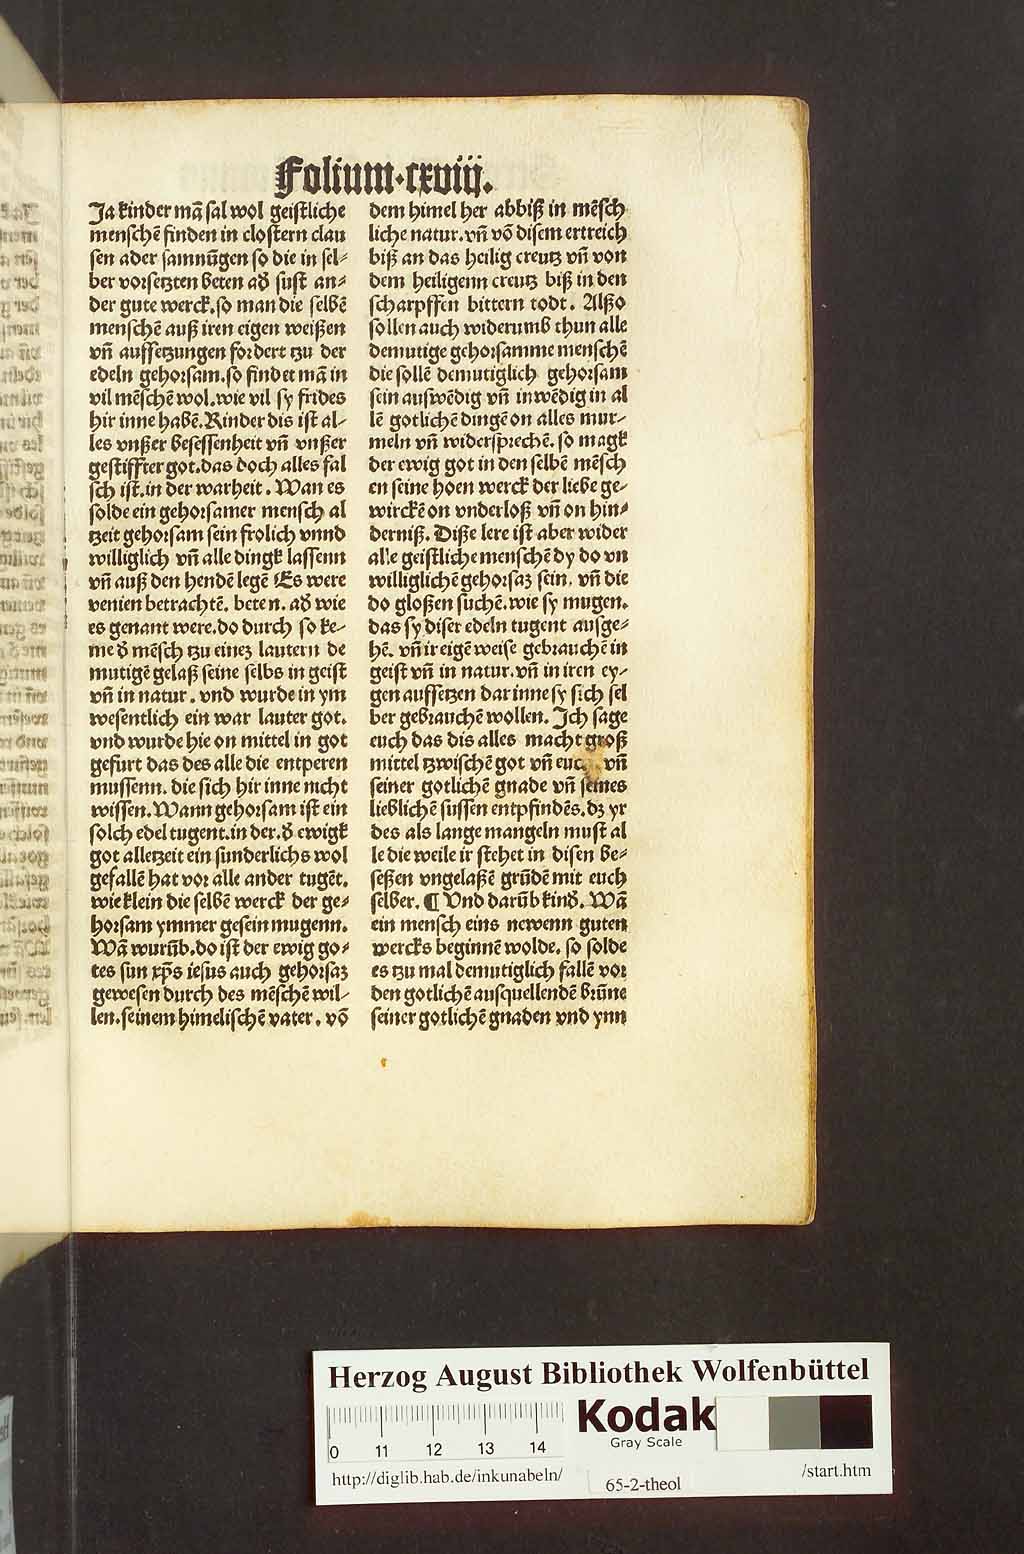 Folium·cxviij.
Ja kinder mā sal wol geistliche
menschē finden in clostern clau
sen ader samnūgen so die in sel⸗
ber vorsetzten beten ad̕ sust an⸗
der gute werck.so man die selbē
menschē auß iren eigen weißen
vn̄ auffsetzungen fordert tzu der
edeln gehorsam.so findet mā in
vil mēschē wol.wie vil sy frides
hir inne habē.Kinder dis ist al⸗
les vnßer besessenheit vn̄ vnßer
gestiffter got.das doch alles fal
sch ist.in der warheit. Wan es
solde ein gehorsamer mensch al
tzeit gehorsam sein frolich vnnd
williglich vn̄ alle dingk lassenn
vn̄ auß den hendē legē Es were
venien betrachtē. beten. ad̕ wie
es genant were.do durch so ke⸗
me d̕ mēsch tzu einez lautern de
mutigē gelaß seine selbs in geist
vn̄ in natur. vnd wurde in ym
wesentlich ein war lauter got.
vnd wurde hie on mittel in got
gefurt das des alle die entperen
mussenn. die sich hir inne nicht
wissen.Wann gehorsam ist ein
solch edel tugent.in der.d̕ ewigk
got alletzeit ein sunderlichs wol
gefallē hat vor alle ander tugēt.
wie klein die selbē werck der ge⸗
horsam ymmer gesein mugenn.
Wā wurūb.do ist der ewig go⸗
tes sun xp̄s iesus auch gehorsaz
gewesen durch des mēschē wil⸗
len.seinem himelischē vater. vō
dem himel her abbiß in mēsch
liche natur.vn̄ vō disem ertreich
biß an das heilig creutz vn̄ von
dem heiligenn creutz biß in den
scharpffen bittern todt. Alßo
sollen auch widerumb thun alle
demutige gehorsamme menschē
die sollē demutiglich gehorsam
sein auswēdig vn̄ inwēdig in al
lē gotlichē dingē on alles mur⸗
meln vn̄ widersprechē. so magk
der ewig got in den selbē mēsch
en seine hoen werck der liebe ge⸗
wirckē on vnderloß vn̄ on hin⸗
derniß. Diße lere ist aber wider
alle geistliche menschē dy do vn
williglichē gehorsaz sein. vn̄ die
do gloßen suchē.wie sy mugen.
das sy diser edeln tugent ausge⸗
hē. vn̄ ir eigē weise gebrauchē in
geist vn̄ in natur.vn̄ in iren ey⸗
gen auffsetzen dar inne sy sich sel
ber gebrauchē wollen. Ich sage
euch das dis alles macht groß
mittel tzwischē got vn̄ vn̄
seiner gotlichē gnade vn̄ seines
lieblichē sussen entpfindēs.dz yr
des als lange mangeln must al
le die weile ir stehet in disen be⸗
seßen vngelaßē grūdē mit euch
selber. ¶ Vnd darūb kind̕. Wā
ein mensch eins newenn guten
wercks beginnē wolde. so solde
es tzu mal demutiglich fallē vor
den gotlichē ausquellendē brūne
seiner gotlichē gnaden vnd ynn
Herzog August Bibliothek Wolfenbüttel
Kodak
Gray Scale
0 11 12 13 14
http://diglib.hab.de/inkunabeln/
65-2-theol
/start.htm